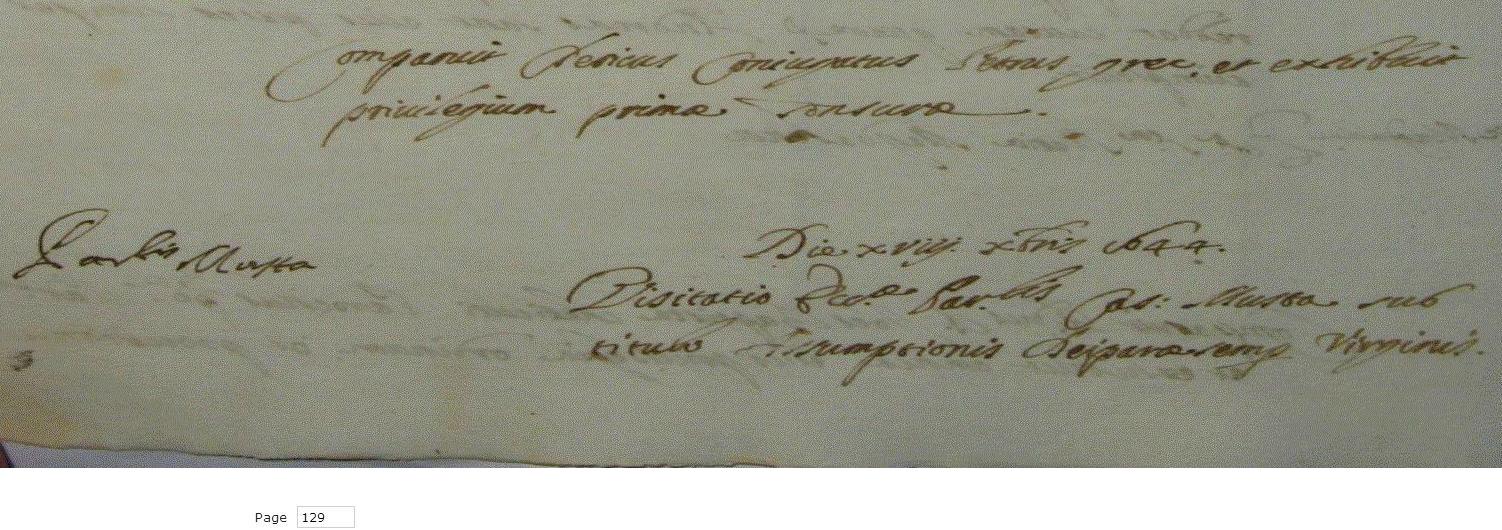 Comparuit Clericus Coniugatus Petrus grec, et exhibuit
privilegium primæ Tonsuræ.
Par.lis Musta
Die xviij xbris 1644.
Visitatio Par.lis Cas: Musta sub
titulo Assumptionis Deiparæ semp Virginis.
Page 129